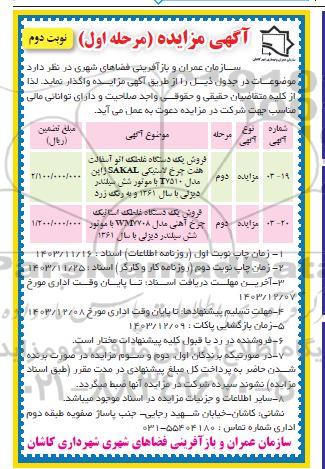 آگهی مزایده (مرحله اول)
نوبت دوم
سازمان عمران و بازآفرینی فضاهای شهری در نظر دارد
موضوعات در جدول ذیل را از طریق آگهی مزایده واگذار نماید. لذا
از کلیه متقاضیان حقیقی و حقوقی واجد صلاحیت و دارای توانائی مالی
مناسب جهت شرکت در مزایده دعوت به عمل می آید.
شماره آگهی
نوع آگهی
مرحله
موضوع آگهی
مبلغ تضمین (ریال)
۰۳-۱۹
مزایده
دوم
فروش یک دستگاه غلطک اتو آسفالت
هفت چرخ لاستیکی SAKAI ژاپن
مدل T۷۵۱۰ با موتور شش سیلندر
دیزلی با سال ۱۳۶۱ و به رنگ زرد
۲/۱۰۰/۰۰۰/۰۰۰
۰۳-۲۰
مزایده
دوم
فروش یک دستگاه غلطک استاتیک
چرخ آهنی مدل WM۷۷۰۸ با موتور
شش سیلندر دیزلی با سال ۱۳۶۱
۱/۲۰۰/۰۰۰/۰۰۰
۱- زمان چاپ نوبت اول (روزنامه اطلاعات) اسناد : ۱۴۰۳/۱۱/۱۶
۲- زمان چاپ نوبت دوم (روزنامه کار و کارگر) اسناد : ۱۴۰۳/۱۱/۲۵
۳-آخریـن مهلـت دریافت اسـناد: تـا پایـان وقت اداری مورخ
۱۴۰۳/۱۲/۰۷
۴-مهلت تسلیم پیشنهادها: تا پایان وقت اداری مورخ ۱۴۰۳/۱۲/۰۸
۵-زمان بازگشایی پاکات : ۱۴۰۳/۱۲/۰۹
۶-فروشنده در رد یا قبول کلیه پیشنهادات مختار است.
۷-در صورتیکه برندگان اول، دوم و سوم مزایده در صورت برنده
شدن حاضر به پرداخت کل مبلغ پیشنهادی در مدت مقرر (طبق اسناد
مزایده) نشوند سپرده شرکت در مزایده آنها ضبط میگردد.
۸-سایر اطلاعات و جزییات مزایده در اسناد موجود میباشد.
نشانی: کاشان-خیابان شـهید رجایی- جنب پاساژ صفویه طبقه دوم
اداری شماره تماس : ۵۵۴۰۴۱۸۰-۰۳۱
سازمان عمران و بازآفرینی فضاهای شهری شهرداری کاشان